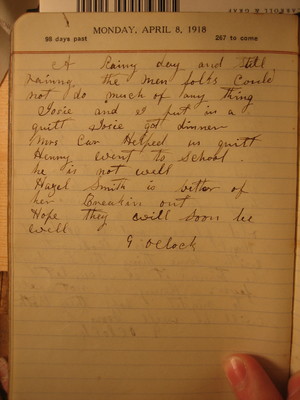 MONDAY, APRIL 8, 1918
98 days past 267 to come
A rainy day and still
raining the men folks could
not do much of any thing
Josie and I put in a
quilt Josie got dinner
Mrs Car Helped us quilt
Henny went to school.
he is not well
Hazel Smith is bitter of
her Breakin out
Hope they will soon be
well
9 oclock